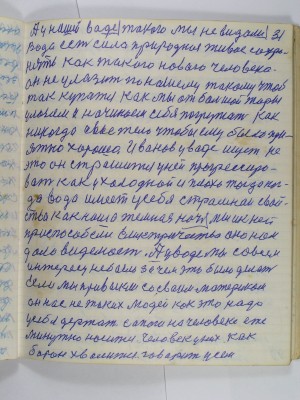 А у нашей воде такого мы не видали 31
вода есть сила природная живое сохра-
нить как такого нового человека
он не улазит по нашему такому чтоб
так купатся как мы от большой горы
улазим и начинаем себя погружать как
никогда в свое тело чтобы ему было при-
ятно хорошо. Иванов у воде ищет не
это он стремится у ней прогрессиро-
вать как у холодной и плохо
вода имеет у себя страшный свой-
ства как наша темная ночь мы к ней
приспособили електричество оно нам
дало видемост. А у воде мы совсем
интересу не было зачем это было делат
если мы привыкли со своим материалом
он нас не таких людей как это надо
у себя держат сапоги на человеке еже
минутно носит. Человек у них как
барон хвалится говорит у себя